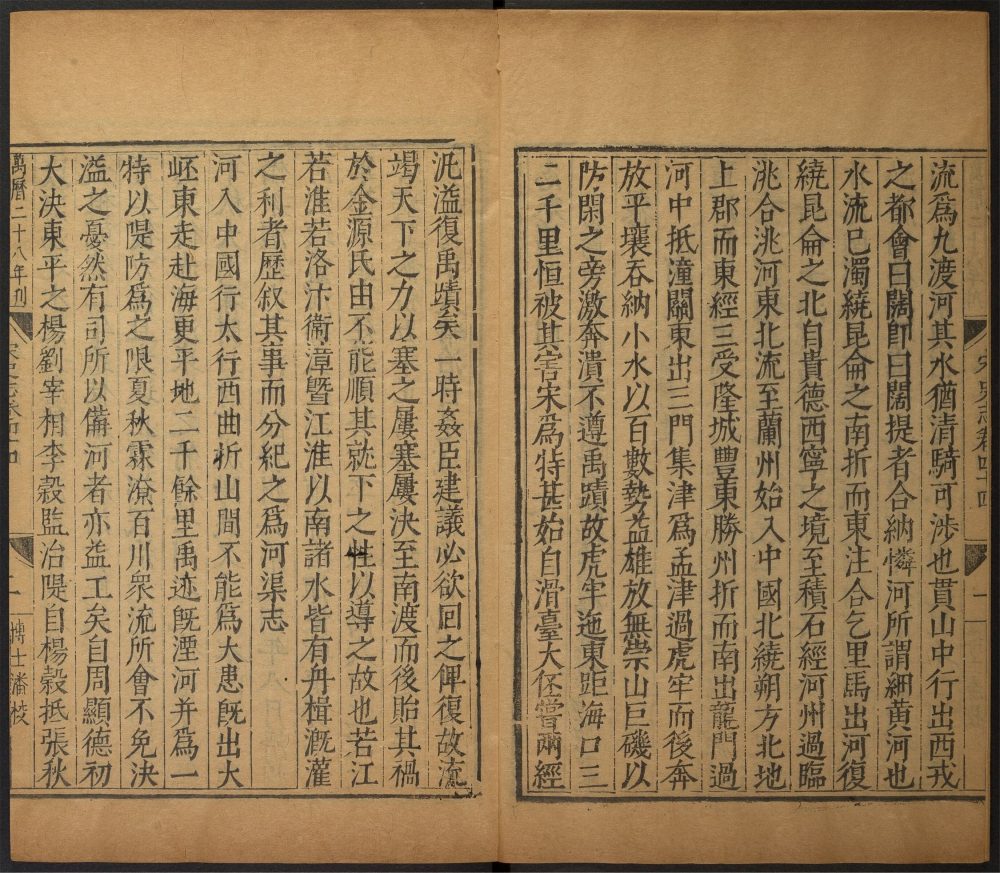 宋史志卷四十四
一
流爲九渡河其水猶清騎可渉也貫山中行出西戎
之都會曰闊即曰闊提者合納憐河所謂細黃河也
水流已濁繞昆侖之南折而東注合乞里馬出河復
繞昆侖之北自貴德西寧之境至積石經河州過臨
洮合洮河東北流至蘭州始入中國北繞朔方北地
上郡而東經三受隆城豐東勝州折而南出龍門過
河中抵潼關東出三門集津爲孟津過虎牢而後奔
放平壤吞納小水以百數勢益雄放無崇山巨磯以
防閑之旁激奔潰不遵禹蹟故虎牢迤東距海口三
二千里恒被其害宋爲特甚始自滑臺大伾嘗兩經
汎溢復禹蹟矣一時姦臣建議必欲回之俾復故流
竭天下之力以塞之屢塞屢決至南渡而後貽其禍
於金源氏由不能順其就下之性以導之故也若江
若淮若洛汴衞漳暨江淮以南諸水皆有舟楫漑灌
之利者歷叙其事而分紀之爲河渠志
河入中國行太行西曲折山間不能爲大患旣出大
岯東走赴海更平地二千餘里禹迹旣湮河并爲一
特以隄防爲之限夏秋霖潦百川衆流所會不免決
溢之憂然有司所以備河者亦益工矣自周顯德初
大決東平之楊劉宰相李穀監治隄自楊穀抵張秋
萬曆二十八年刊
宋史志卷四十四
二
博士潘 校